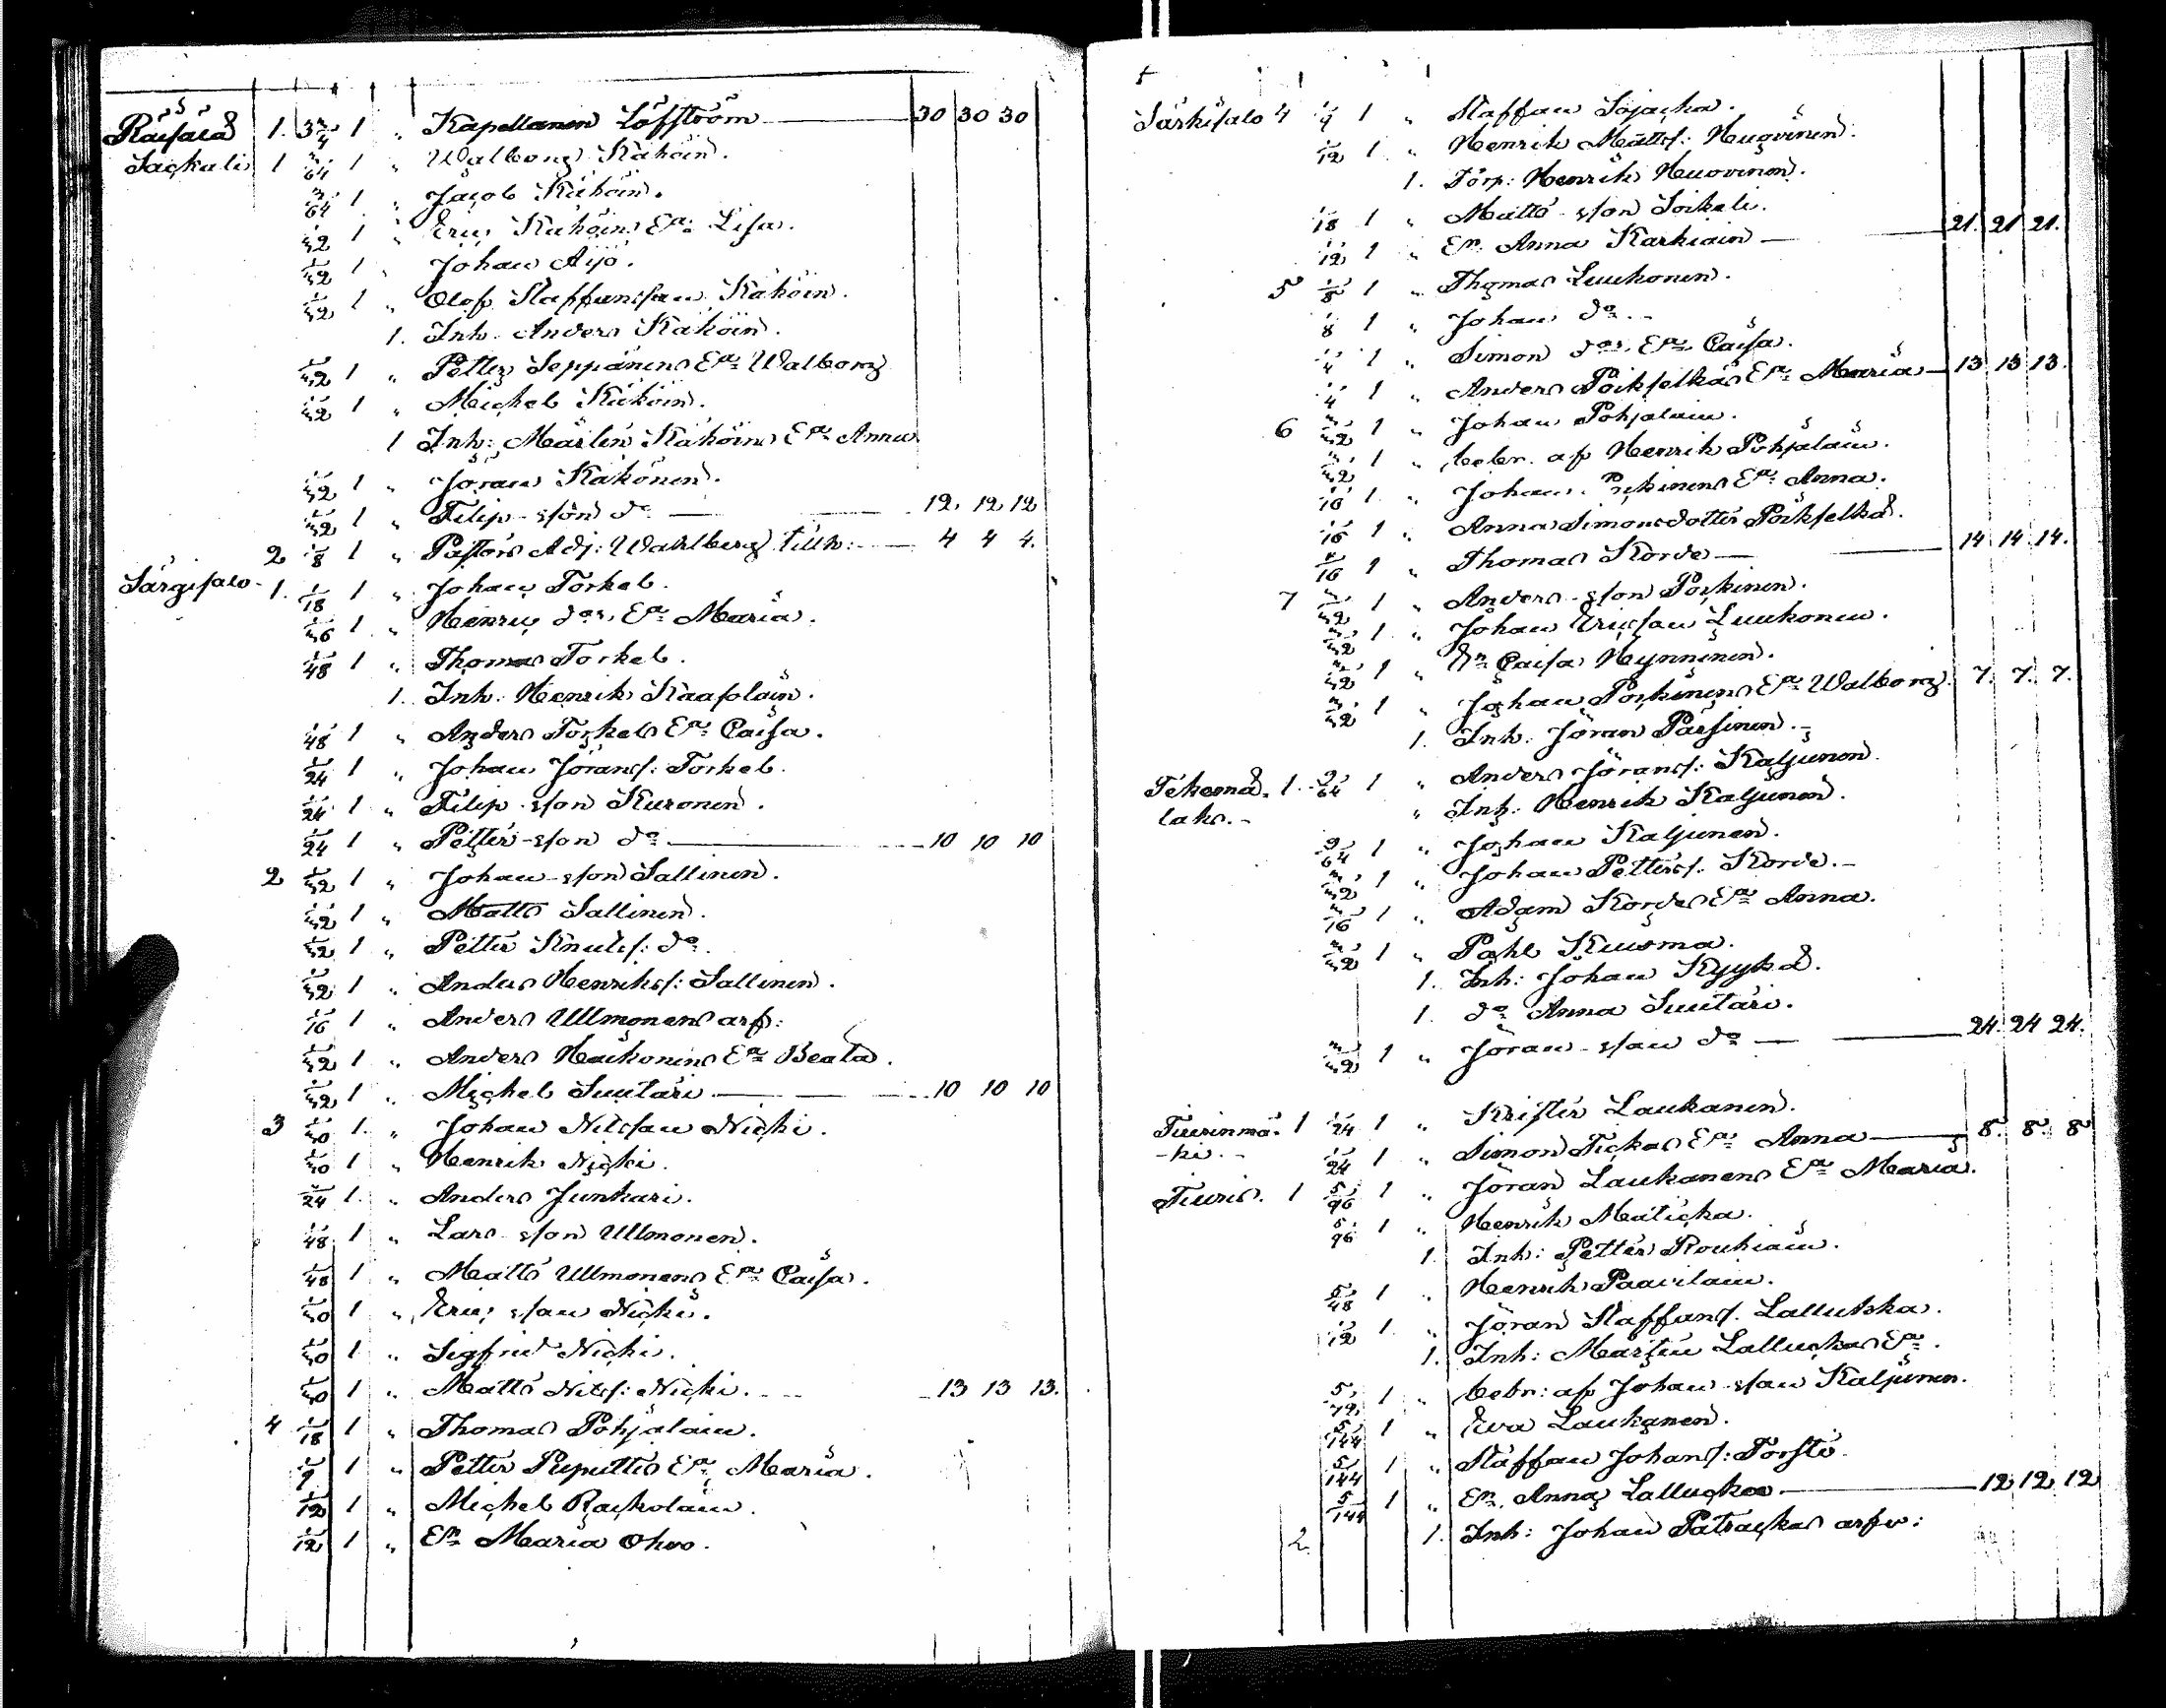 Räisälä 1. 3/4 1 " Kapellanen Löfström — 30 30 30
Sackali 1 3/64 1 " Walborg Kähöin.
3/64 1 " Jacob Kähöin.
1/32 1 " Eric Kähöins Ea: Lisa.
1/32 1 " Johan Äijö.
1/32 1 " Olof Staffansson Kähöin.
1. Inh. Anders Kähöin.
1/32 1 " Petter Seppänens Ea: Walborg
1/32 1 " Michel Kähöin.
1 Inh: Mårten Kähöins Ea: Anna
1/32 1 " Jöran Kähönen.
1/32 1 " Filip -sson do — 12. 12 12
2 1/8 1 " Pastors Adj: Wahlberg tillh: — 4 4 4.
Särgisalo - 1. 1/18 1 " Johan Torkel.
1/36 1 " Henric do:s Ea: Maria.
1/48 1 " Thomas Torkel.
1. Inh: Henrik Kaasolain.
1/48 1 " Anders Torkels Ea: Caisa.
1/24 1 " Johan Jörans/: Torkel.
1/24 1 " Filip -sson Kuronen.
1/24 1 " Petter -sson do — 10 10 10
2 1/32 1 " Johan -sson Sallinen.
1/32 1 " Matts Sallinen.
1/32 1 " Petter Knuts/: do.
1/32 1 " Anders Henriks/: Sallinen.
1/16 1 " Anders Ullmonens arf:
1/32 1 " Anders Haikonens Ea: Beata.
1/32 1 " Michel Suutari — 10 10 10
3 1/30 1. " Johan Nilsson Nicki.
1/30 1 " Henrik Nicki.
1/24 1. " Anders Junkari.
1/48 1 " Lars -sson Ullmonen.
1/48 1 " Matts Ullmonens Ea: Caisa.
1/30 1 " Eric -sson Nicki.
1/30 1 " Sigfrid Nicki.
1/30 1 " Matts Nils/: Nicki. — 13 13 13.
4 1/18 1 " Thomas Pohjalain.
1/9 1 " Petter Puputtis Ea: Maria.
1/12 1 " Michel Rackolain.
1/12 1 " En: Maria Ohvo.
Särkisalo 4 1/9 1 " Staffan Sojacka.
1/12 1 " Henrik Matts/: Huovinen.
1. Torp: Henrik Huovinen.
1/18 1 " Matts -sson Soikeli.
1/12 1 " En: Anna Karhiain — 21. 21 21.
5 1/8 1 " Thomas Luukonen.
1/8 1 " Johan do. -
1/4 1 " Simon do:s Ea: Caisa.
1/4 1 " Anders Poikselkäs Ea: Maria — 13 13 13.
6 3/32 1 " Johan Pohjalain.
3/32 1 " bebr. af Henrik Pohjalain.
1/16 1 " Johan Pskinens Ea: Anna.
1/16 1 " Anna Simonsdotter Poikselkä.
1/16 1 " Thomas Korve — 14 14 14.
7 3/32 1 " Anders -sson Poskinen.
3/32 1 " Johan Ericsson Luukonen.
3/32 1 " En: Caisa Hynninen.
3/32 1 " Johan Poskinens Ea: Walborg. 7. 7. 7.
1. Inh. Jöran Pärsinen. -
Tehemä- 1. 9/64 1 " Anders Jörans/: Kaljunen.
laks. - " Inh: Henrik Kaljunen.
9/64 1 " Johan Kaljunen.
3/32 1 " Johan Petters/: Korve. -
3/16 1 " Adam Korves Ea: Anna.
3/32 1 " Pahl Kuusma.
1. Inh: Johan Kyykä.
1. do Anna Suutari.
3/32 1 " Jöran -sson do — 24. 24 24.
Tiurinmä- 1 1/24 1 " Krister Laukanen.
-ki. - 1/24 1 " Simon Tickas Ea: Anna — 8. 8. 8
Tiuris. 1 5/96 1 " Jöran Laukanens Ea: Maria.
5/96 1 " Henrik Maticka.
1. Inh: Petter Rouhiain.
5/48 1 " Henrik Paavilain.
1/12 1. " Jöran Staffans/. Lallukka.
1. Inh: Mårten Lalluckas Ea:.
5/72 1 " bebr: af Johan -sson Kaljunen.
5/144 1 " Ewa Laukanen.
5/144 1 " Staffan Johans/: Torsti.
5/144 1 " En: Anna Lallucka — 12 12 12
2. 1. Inh: Johan Patrackas arfv: